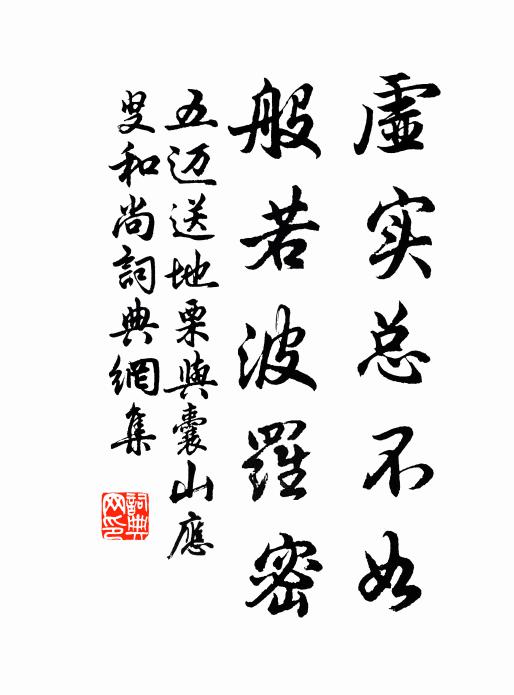 虚实总不如
般若波羅密
五迈送地栗與囊山應
叟和尚詞典網集
詞典
网印